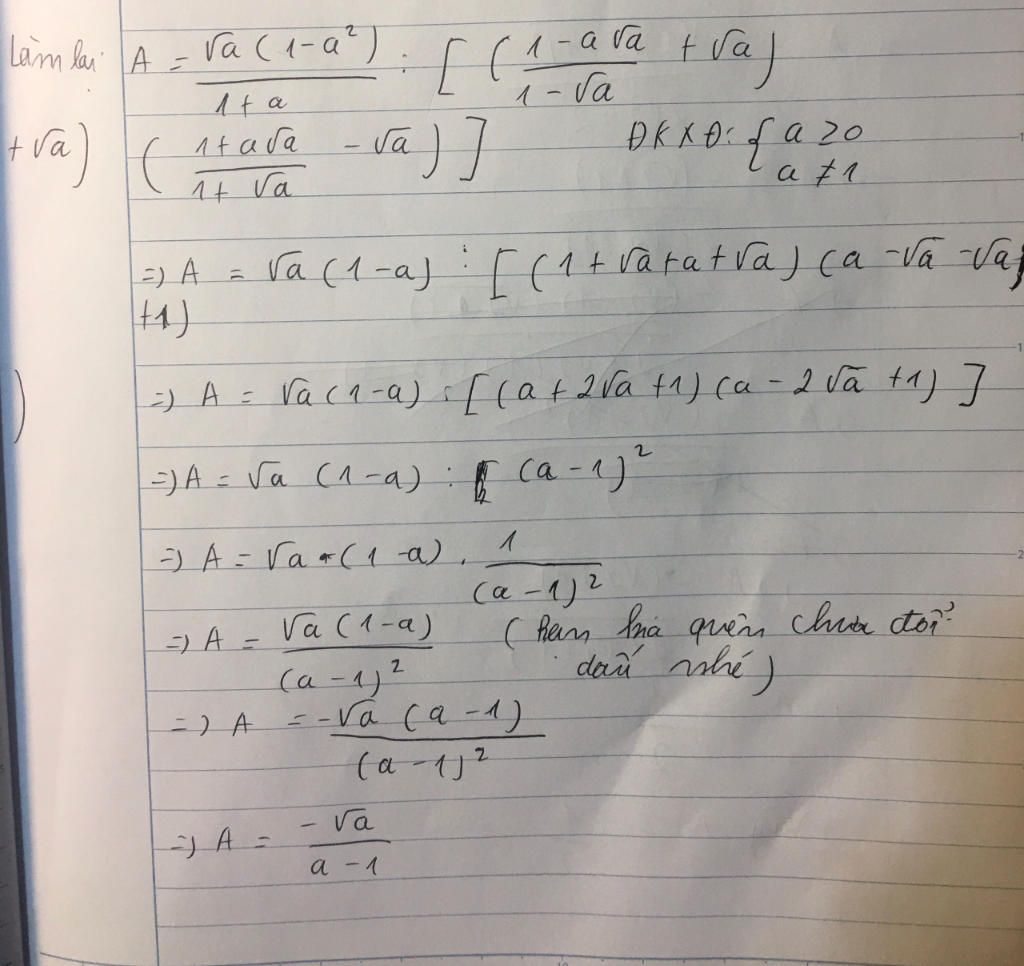 Làm lại: A = √a (1 - a²) / 1 + a : [ ( 1 - a√a / 1 - √a + √a )
+ √a ) ( 1 + a√a / 1 + √a - √a ) ] ĐKXĐ: { a ≥ 0
a ≠ 1
=> A = √a (1 - a) : [ (1 + √a + a + √a) (a - √a - √a
+1)
) => A = √a (1 - a) : [ (a + 2√a + 1) (a - 2√a + 1) ]
=> A = √a (1 - a) : (a - 1)²
=> A = √a . (1 - a) . 1 / (a - 1)²
=> A = √a (1 - a) / (a - 1)² ( quên chưa đổi
dấu nhé )
=> A = -√a (a - 1) / (a - 1)²
=> A = -√a / a - 1